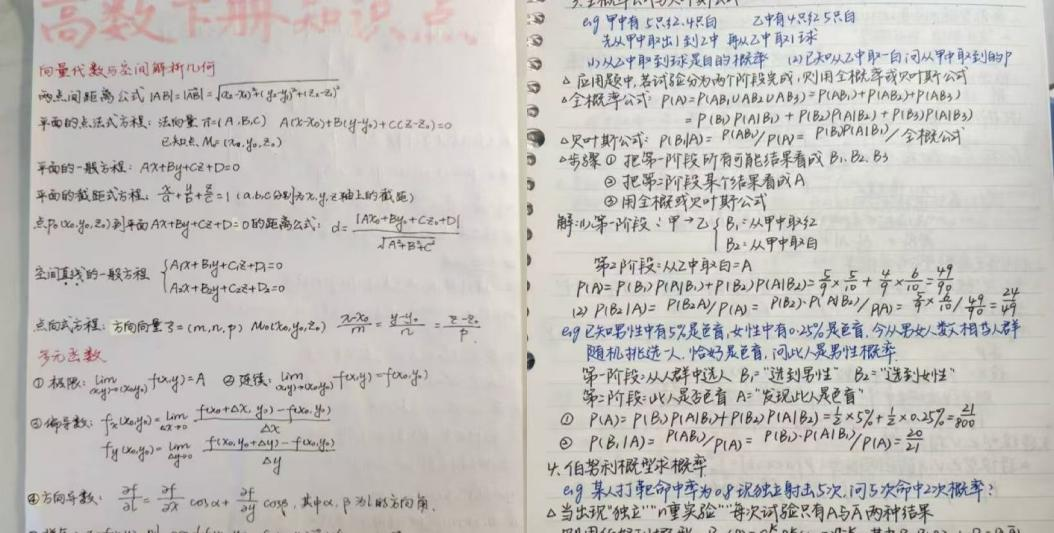 高数下册知识点
向量代数与空间解析几何
两点间距离公式 |AB|=|AB|=√(x₂-x₁)²+(y₂-y₁)²+(z₂-z₁)²
平面的点法式方程: 法向量 n=(A,B,C) A(x-x₀)+B(y-y₀)+C(z-z₀)=0
已知点 M=(x₀,y₀,z₀)
平面的一般方程: Ax+By+Cz+D=0
平面的截距式方程: x/a+y/b+z/c=1 (a,b,c分别为x,y,z轴上的截距)
点P₀(x₀,y₀,z₀)到平面Ax+By+Cz+D=0的距离公式: d=|Ax₀+By₀+Cz₀+D|/√A²+B²+C²
空间直线的一般方程 { A₁x+B₁y+C₁z+D₁=0
A₂x+B₂y+C₂z+D₂=0
点向式方程: 方向向量 s=(m,n,p) M₀(x₀,y₀,z₀) x-x₀/m = y-y₀/n = z-z₀/p
多元函数
① 极限: lim (x,y)→(x₀,y₀) f(x,y)=A ② 连续: lim (x,y)→(x₀,y₀) f(x,y)=f(x₀,y₀)
③ 偏导数: fx(x₀,y₀)= lim Δx→0 f(x₀+Δx, y₀)-f(x₀,y₀)/Δx
fy(x₀,y₀)= lim Δy→0 f(x₀,y₀+Δy)-f(x₀,y₀)/Δy
④ 方向导数: ∂f/∂l = ∂f/∂x cosα + ∂f/∂y cosβ, 其中α, β为l的方向角.
eg 甲中有5只红,4只白 乙中有4只红5只白
先从甲中取出1到乙中 再从乙中取1球
(1)从乙中取到球是白的概率 (2)已知从乙中取一白问从甲中取到的P
△ 应用题中,若试验分为两个阶段完成,则用全概率或贝叶斯公式
△ 全概率公式: P(A)=P(AB₁∪AB₂∪AB₃)=P(AB₁)+P(AB₂)+P(AB₃)
= P(B₁)P(A|B₁)+P(B₂)P(A|B₂)+P(B₃)P(A|B₃)
△ 贝叶斯公式: P(B₁|A)= P(AB₁)/P(A) = P(B₁)P(A|B₁)/全概公式
△步骤 ① 把第一阶段所有可能结果看成 B₁, B₂, B₃
② 把第二阶段某个结果看成A
③ 用全概或贝叶斯公式
解:(1) 第一阶段: 甲→乙 { B₁=从甲中取红
B₂=从甲中取白
第二阶段:从乙中取白=A
P(A)=P(B₁)P(A|B₁)+P(B₂)P(A|B₂)=5/9×5/10+4/9×6/10=49/90
(2) P(B₂|A)= P(B₂A)/P(A) = P(B₂)·P(A|B₂)/P(A)= 4/9×6/10/49/90=24/49
eg 已知男性中有5%是色盲,女性中有0.25%是色盲,今从男女人数相当人群
随机挑选一人,恰好是色盲,问此人是男性概率.
第一阶段:从人群中选人 B₁="选到男性" B₂="选到女性"
第二阶段:此人是否色盲 A="发现此人是色盲"
① P(A)=P(B₁)P(A|B₁)+P(B₂)P(A|B₂)=1/2×5%+1/2×0.25%=21/800
② P(B₁|A)= P(AB₁)/P(A)= P(B₁)·P(A|B₁)/P(A)=20/21
4. 伯努利概型求概率
eg 某人打靶命中率为0.8 现独立射击5次,问5次命中2次概率?
△ 当出现"独立""n重实验""每次试验只有A与Ā两种结果